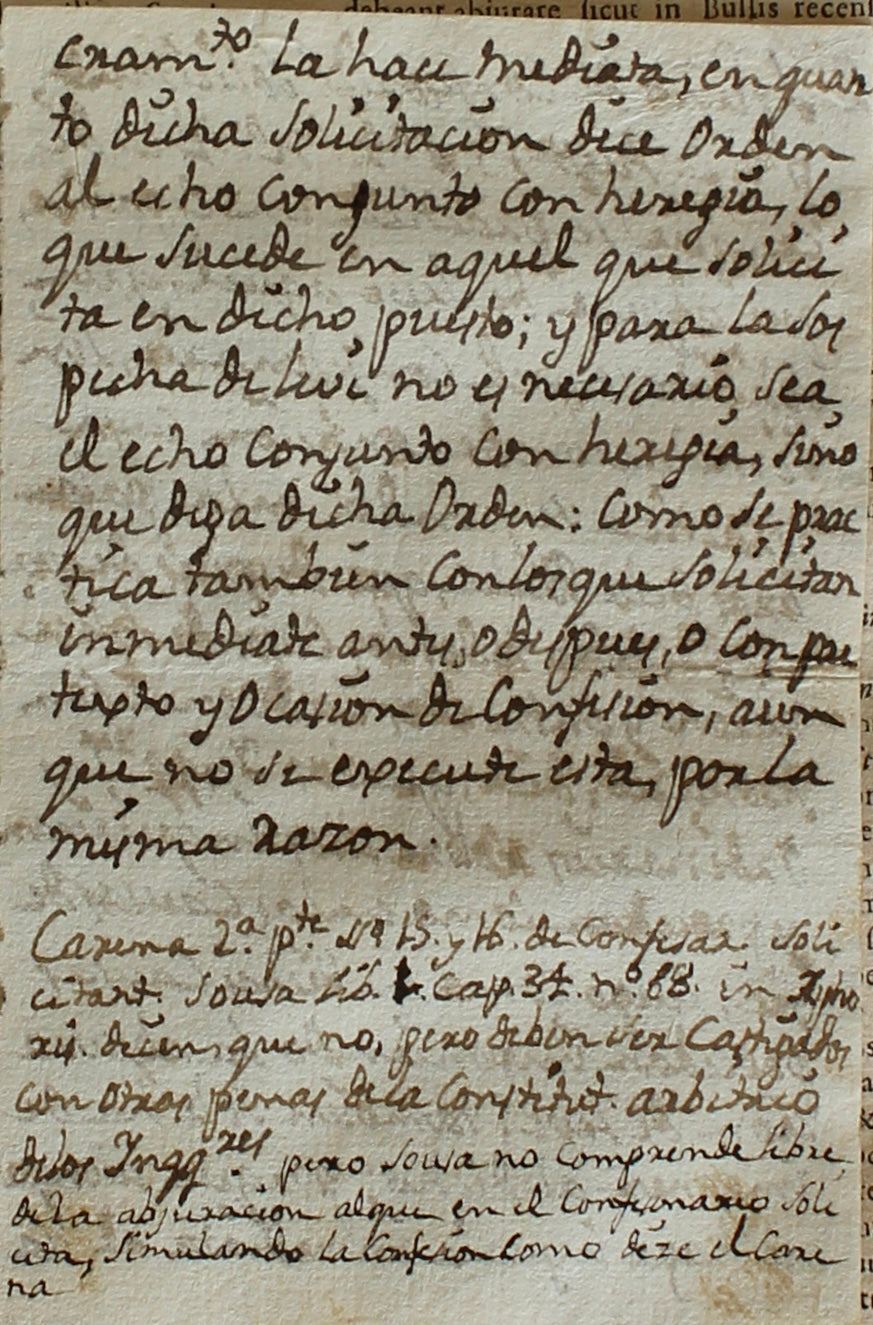 debeant abjurare sicut in Bullis recens
cram.to la hace mediata, en quan
to dicha solicitacion dice Orden
al echo conjunto con heregia, lo
que sucede en aquel que solici
ta en dicho puesto; y para la sos
pecha de levi no es necesario sea
el echo conjunto con heregia, sino
que diga dicha Orden: como se prac
tica tambien con los que solicitan
inmediate antes, o despues, o con pre
texto y Ocasion de Confesion, aun
que no se execute esta, por la
misma razon.
Carena 2.a p.te n.o 15. y 16. de Confesar. soli
citant. Sousa lib. 1. Cap. 34. n.o 68. in
dicen, que no, pero deben ser Castigados
con otras penas de la Constitut. arbitrio
de los Inqq.res pero Sousa no comprende libre
de la abjuracion al que en el Confesonario soli
cita, simulando la Confesion como dize el Care
na